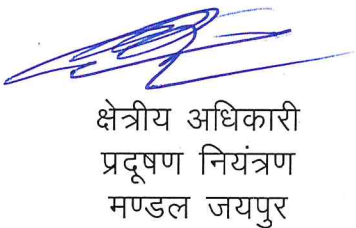 क्षेत्रीय अधिकारी
प्रदूषण नियंत्रण
मण्डल जयपुर